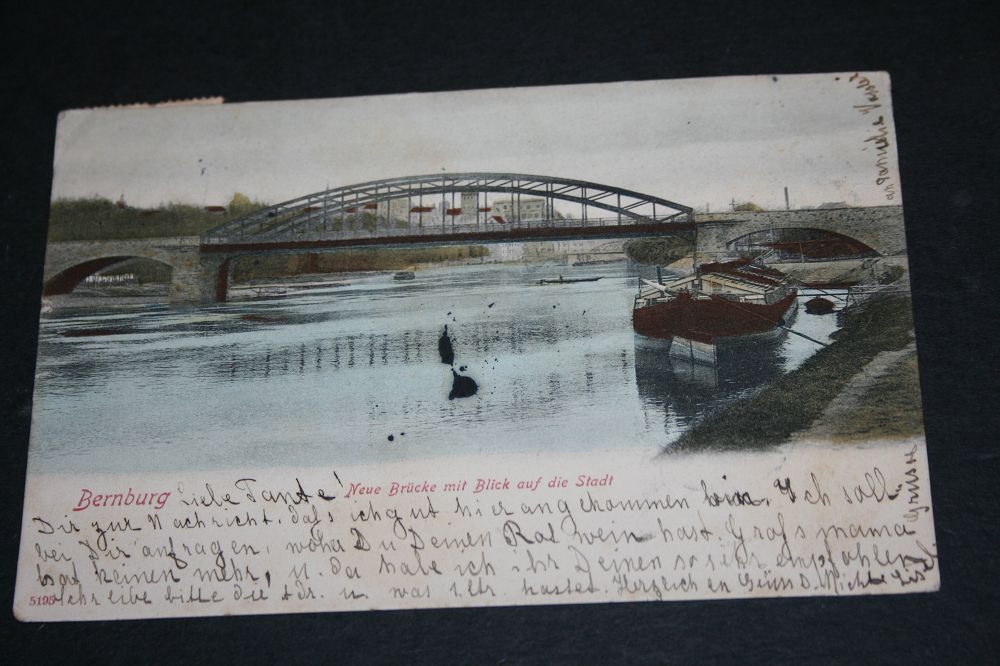 Bernburg
Neue Brücke mit Blick auf die Stadt
Liebe Tante!
Dir zur Nachricht, dass ich gut hier angekommen bin. Ich soll
bei Dir anfragen, woher Du Deinen Rotwein hast. Grossmama
hat keinen mehr, u. da habe ich ihr Deinen so sehr empfohlen
bitte die Adr. u. was 1 Ltr. kostet. Herzlichen Gruss D.
5195
Grüsse
an Familie